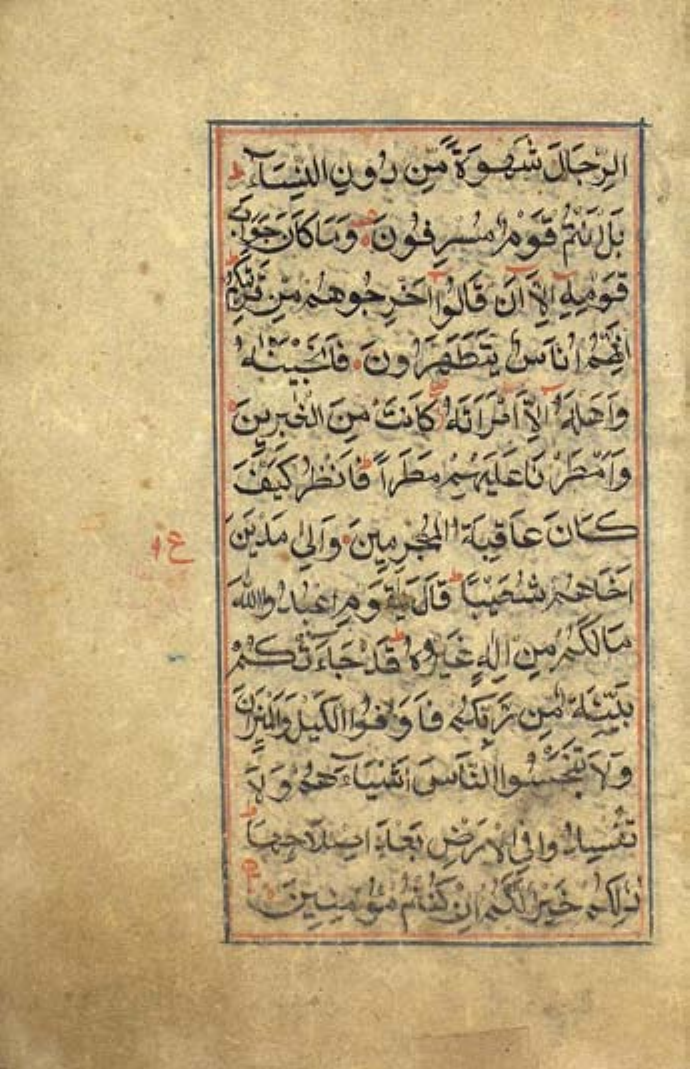 الرِّجَالَ شَهْوَةً مِّن دُونِ النِّسَآءِ ط
بَلْ اَنتُمْ قَوْمٌ مُّسْرِفُونَ وَمَا كَانَ جَوَابَ
قَوْمِهٖ اِلَّآ اَنْ قَالُوْآ اَخْرِجُوهُم مِّنْ قَرْيَتِكُمْ
اِنَّهُمْ اُنَاسٌ يَّتَطَهَّرُونَ فَاَنجَيْنٰهُ
وَاَهْلَهٗٓ اِلَّا امْرَاَتَهٗ كَانَتْ مِنَ الْغٰبِرِينَ
وَاَمْطَرْنَا عَلَيْهِمْ مَطَرًا ط فَانْظُرْ كَيْفَ
كَانَ عَاقِبَةُ الْمُجْرِمِينَ وَاِلٰى مَدْيَنَ
اَخَاهُمْ شُعَيْبًا ط قَالَ يٰقَوْمِ اعْبُدُوا اللّٰهَ
مَالَكُمْ مِنْ اِلٰهٍ غَيْرُهٗ ط قَدْ جَآءَتْكُمْ
بَيِّنَةٌ مِّن رَّبِّكُمْ فَاَوْفُوا الْكَيْلَ وَالْمِيْزَانَ
وَلَا تَبْخَسُوا النَّاسَ اَشْيَآءَهُمْ وَلَا
تُفْسِدُوا فِى الْاَرْضِ بَعْدَ اِصْلَاحِهَا ط
ذٰلِكُمْ خَيْرٌ لَّكُمْ اِنْ كُنتُمْ مُّؤْمِنِينَ